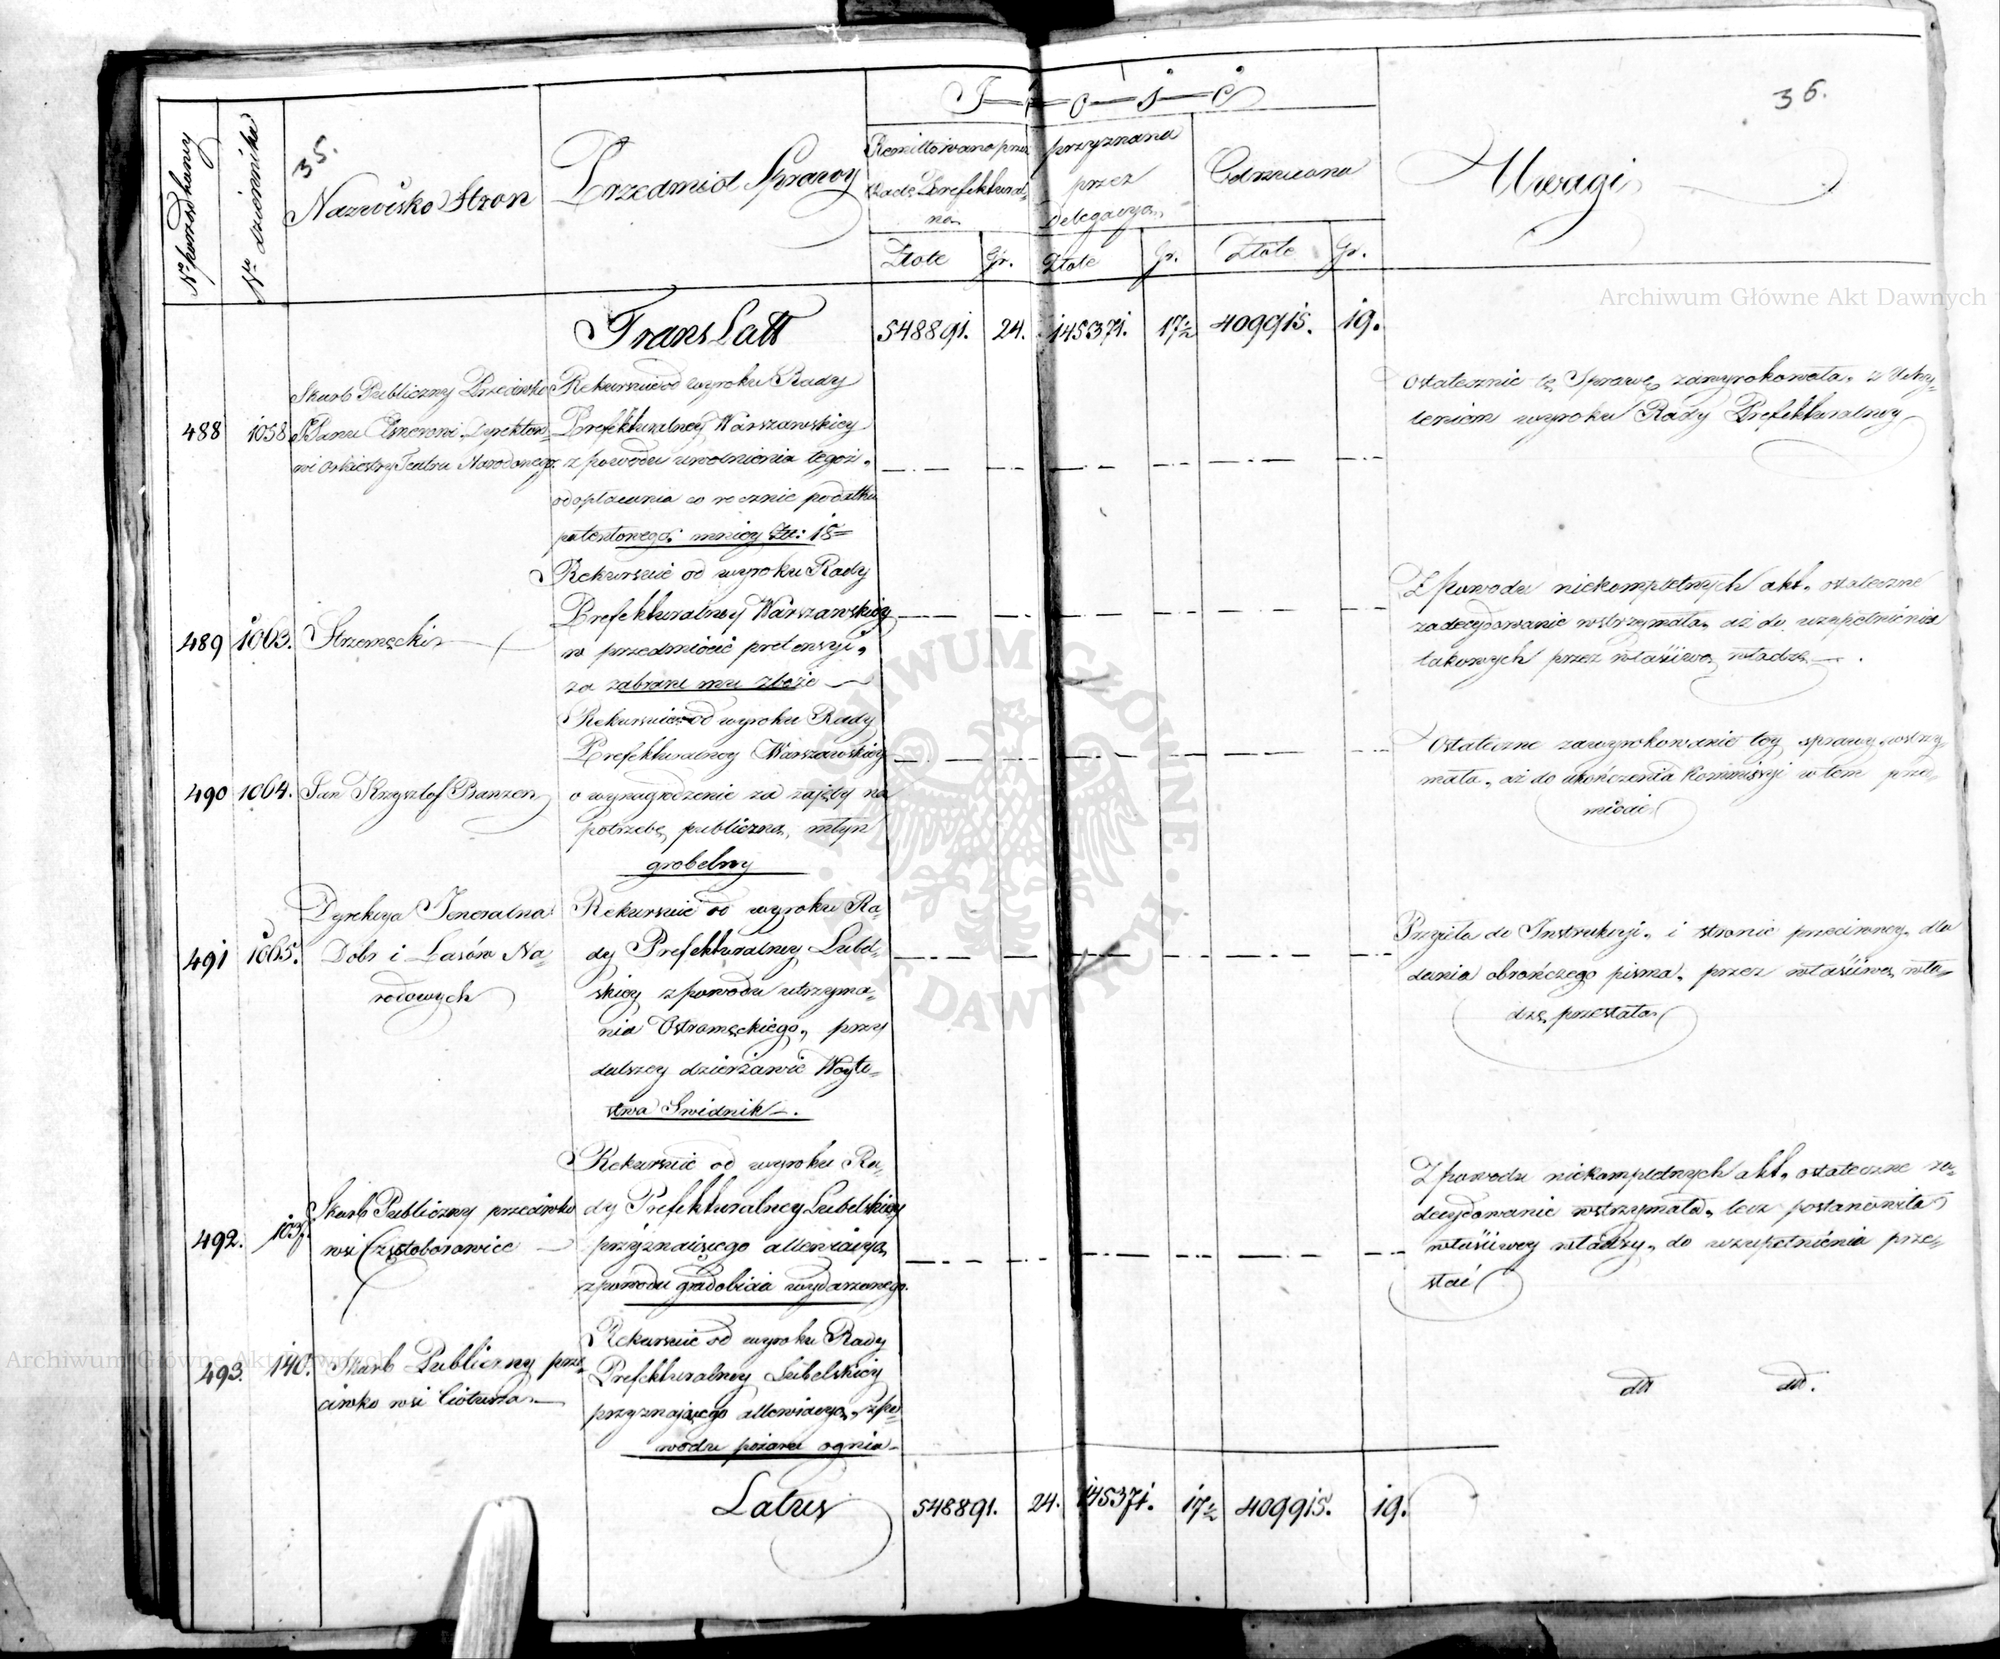 35.
36.
Nro porządkowy
Nro dziennika
Nazwisko Stron
Przedmiot Sprawy
Ilość
Remittowano przez
Radę Prefektural-
ną
przyznana
przez
Delegacyą
Odrzucona
Uwagi
Złote
Gr.
Złote
Gr.
Złote
Gr.
TransLatt
548891. 24. 145371. 17½ 409915. 19.
488
1058
Skarb Publiczny Przeciwko
Panu Elsnerowi Dyrektoro-
wi Orkiestry Teatru Narodowego
Rekursuie od wyroku Rady
Prefekturalney Warszawskiey
z powodu uwolnienia tegoż
od opłacania corocznie podatku
patentowego mniey Złt: 18
Ostatecznie tę Sprawę zawyrokowała z Uchy-
leniem wyroku Rady Prefekturalney
489
1063.
Strzemęcki
Rekursuie od wyroku Rady
Prefekturalney Warszawskiey
w przedmiocie pretensyi
za zabrane mu zboże
Z powodu niekompletnych akt, ostateczne
zadecydowanie wstrzymała, aż do uzupełnienia
takowych przez właściwą władzę
490
1064.
Jan Krzysztof Banzen
Rekursuie od wyroku Rady
Prefekturalney Warszawskiey
o wynagrodzenie za zajęty na
potrzebę publiczną młyn
grobelny
Ostateczne zawyrokowanie tey sprawy wstrzy-
mała, aż do ukończenia Kommissyi w tem prze-
miocie
491
1065.
Dyrekcya Jeneralna
Dobr i Lasów Na-
rodowych
Rekursuie od wyroku Ra-
dy Prefekturalney Lubel-
skiey z powodu utrzyma-
nia Ostromęckiego, przy
dalszey dzierżawie Woyto-
stwa Swidnik
Przyięła do Instrukcyi i stronie przeciwney dla
dania obrończego pisma, przez właściwą wła-
dzę przesłała
492.
137.
Skarb Publiczny przeciwko
wsi Częstoborowice
Rekursuie od wyroku Ra-
dy Prefekturalney Lubelskiey
przyznaiącego allewiacyą
z powodu gradobicia wydarzonego.
Z powodu niekompletnych akt, ostateczne za-
decydowanie wstrzymała, lecz postanowiła
właściwey władzy, do uzupełnienia prze-
słać
493.
140.
Skarb Publiczny prze-
ciwko wsi Ciotusza
Rekursuie od wyroku Rady
Prefekturalney Lubelskiey
przyznającego allewiacyą, z po-
wodu pożaru ognia
dtt dtt.
Latus
548891. 24. 145371. 17½ 409915. 19.
Archiwum Główne Akt Dawnych
Archiwum Główne Akt Dawnych
ARCHIWUM GŁÓWNE AKT DAWNYCH